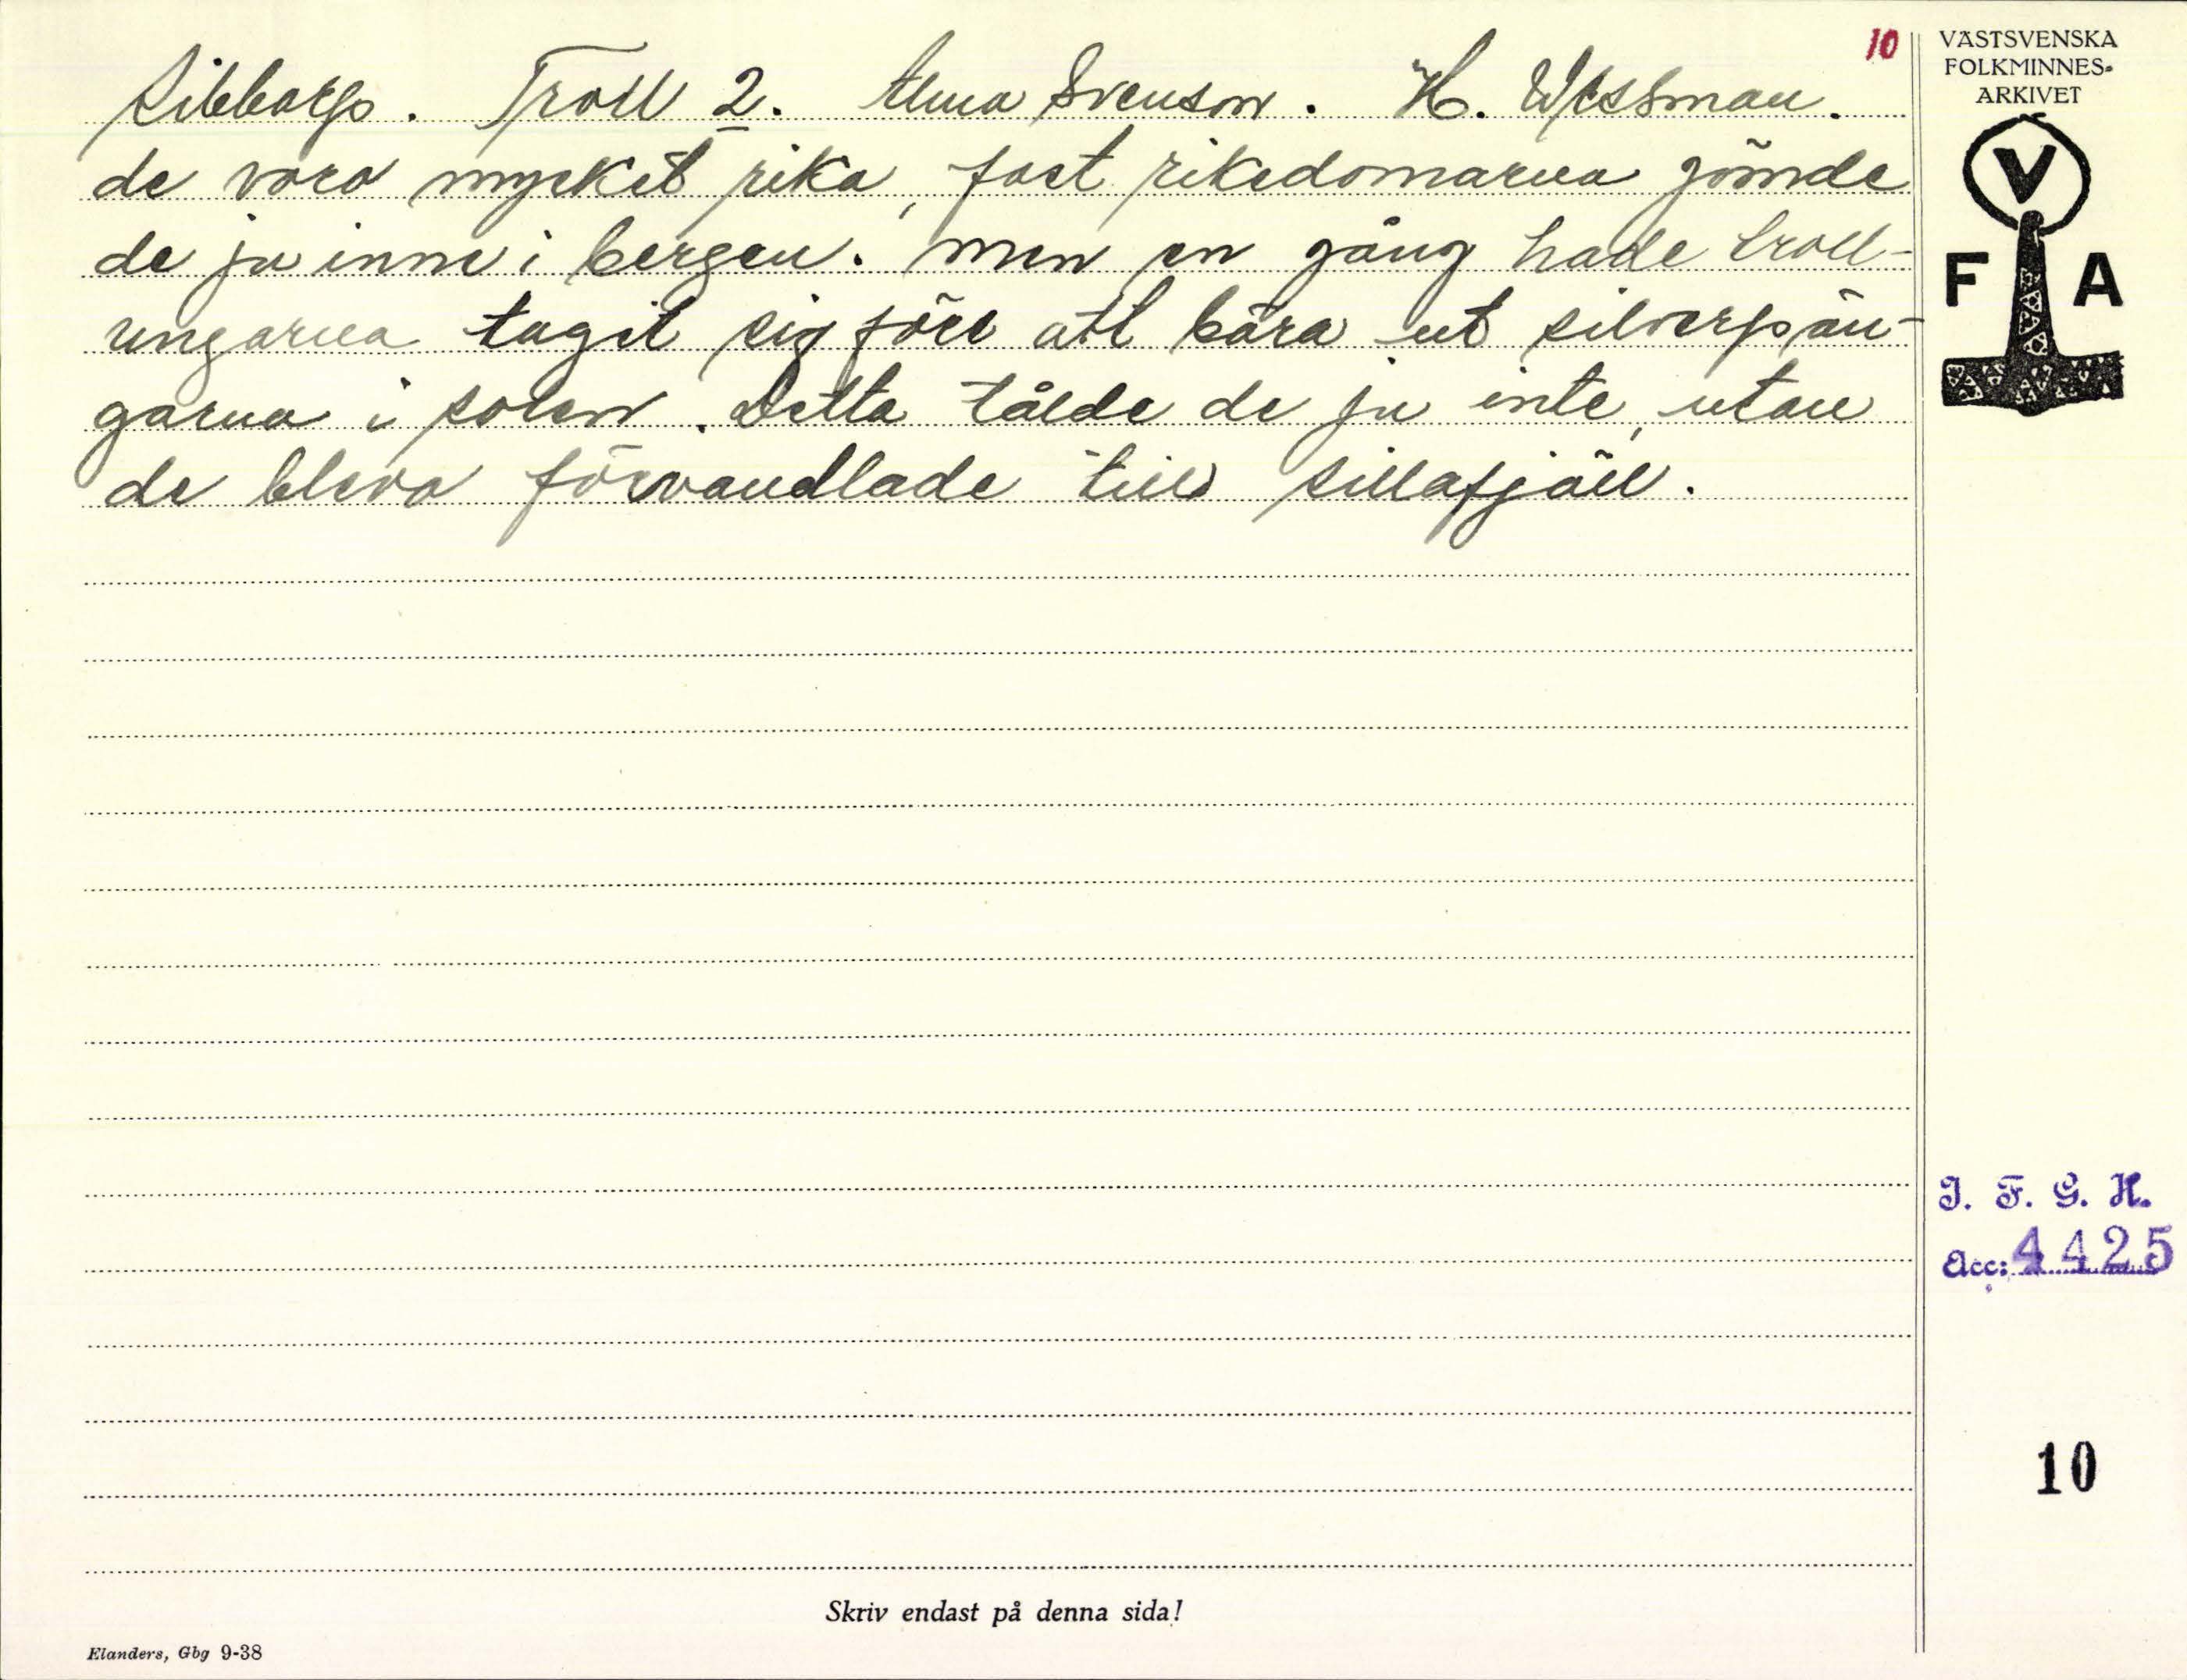 10
Sibbarp. Troll 2. Alma Svenson. H. Wessman.
de voro mycket rika, fast rikedomarna gömde
de ju inne i bergen. Men en gång hade troll-
ungarna tagit sig före att bära ut silverpän-
garna i solen. Detta tålde de ju inte, utan
de bleva förvandlade till sillafjäll.
VÄSTSVENSKA
FOLKMINNES-
ARKIVET
V
F A
I. F. G. H.
Acc: 4425
10
Skriv endast på denna sida!
Elanders, Gbg 9-38